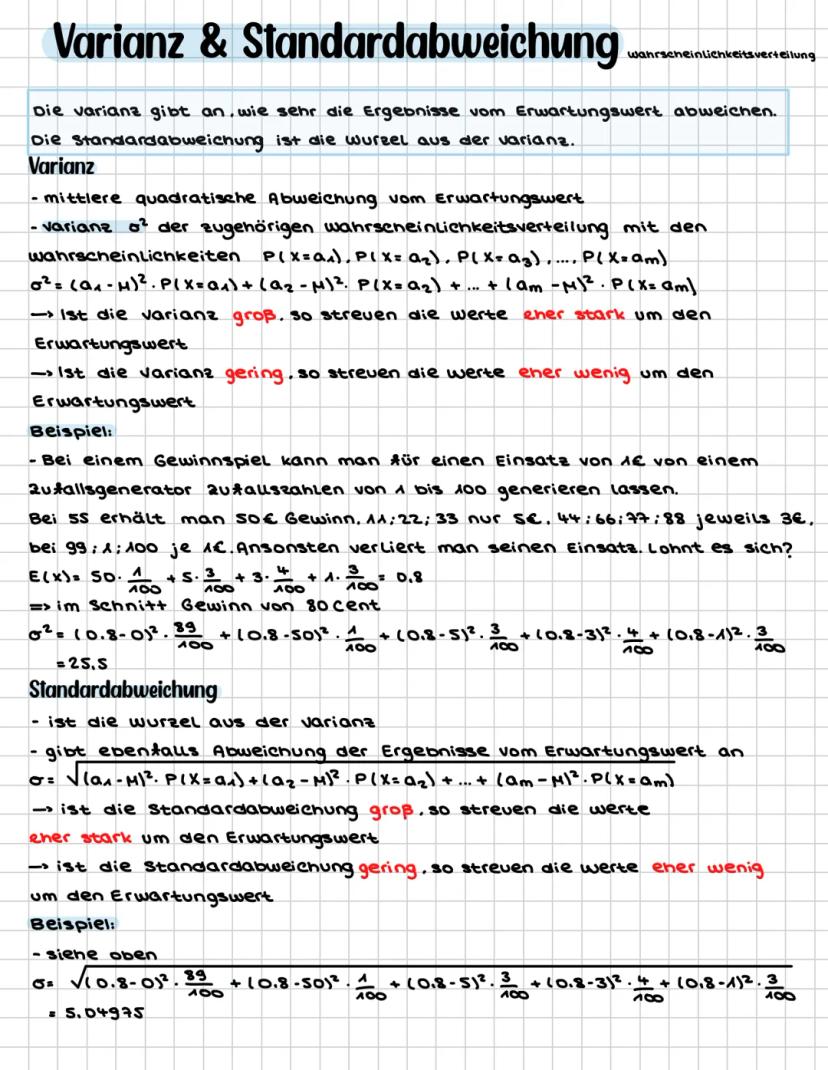 Varianz & Standardabweichung wahrscheinlichkeitsverteilung
Die Varianz gibt an, wie sehr die Ergebnisse vom Erwartungswert abweichen.
Die Standardabweichung ist die Wurzel aus der Varianz.
Varianz
- mittlere quadratische Abweichung vom Erwartungswert
- Varianz σ² der zugehörigen Wahrscheinlichkeitsverteilung mit den
Wahrscheinlichkeiten P(X=a₁), P(X=a₂), P(X=a₃), ..., P(X=am)
σ² = (a₁-μ)² · P(X=a₁) + (a₂-μ)² · P(X=a₂) + ... + (am-μ)² · P(X=am)
→ Ist die Varianz groß, so streuen die Werte eher stark um den
Erwartungswert
→ Ist die Varianz gering, so streuen die Werte eher wenig um den
Erwartungswert
Beispiel:
- Bei einem Gewinnspiel kann man für einen Einsatz von 1€ von einem
Zufallsgenerator Zufallszahlen von 1 bis 100 generieren lassen.
Bei 55 erhält man 50€ Gewinn, 11; 22; 33 nur 5€, 44; 66; 77; 88 jeweils 3€,
bei 99; 1; 100 je 1€. Ansonsten verliert man seinen Einsatz. Lohnt es sich?
E(X)= 50 · 1/100 + 5 · 3/100 + 3 · 4/100 + 1 · 3/100 = 0,8
=> im Schnitt Gewinn von 80 Cent
σ² = (0,8-0)² · 89/100 + (0,8-50)² · 1/100 + (0,8-5)² · 3/100 + (0,8-3)² · 4/100 + (0,8-1)² · 3/100
= 25,5
Standardabweichung
- ist die Wurzel aus der Varianz
- gibt ebenfalls Abweichung der Ergebnisse vom Erwartungswert an
σ = √((a₁-μ)² · P(X=a₁) + (a₂-μ)² · P(X=a₂) + ... + (am-μ)² · P(X=am))
→ ist die Standardabweichung groß, so streuen die Werte
eher stark um den Erwartungswert
→ ist die Standardabweichung gering, so streuen die Werte eher wenig
um den Erwartungswert
Beispiel:
- siehe oben
σ = √((0,8-0)² · 89/100 + (0,8-50)² · 1/100 + (0,8-5)² · 3/100 + (0,8-3)² · 4/100 + (0,8-1)² · 3/100)
= 5,04975